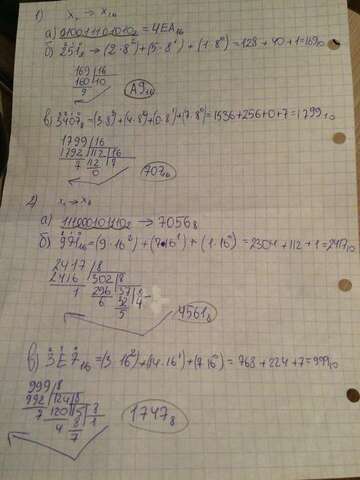 1) Xₙ → X₁₆
а) 10011101010₂ = 4EA₁₆
б) 251₈ → (2·8²)+(5·8¹)+(1·8⁰)=128+40+1=169₁₀
169 | 16
160 | 10
9
A9₁₆
в) 3407₈=(3·8³)+(4·8²)+(0·8¹)+(7·8⁰)=1536+256+0+7=1799₁₀
1799 | 16
1792 | 112 | 16
7 | 112 | 7
0
707₁₆
2) Xₙ → X₈
а) 111000101110₂ → 7056₈
б) 971₁₆=(9·16²)+(7·16¹)+(1·16⁰)=2304+112+1=2417₁₀
2417 | 8
2416 | 302 | 8
1 | 296 | 37 | 8
6 | 32 | 4
5
4561₈
в) 3E7₁₆=(3·16²)+(14·16¹)+(7·16⁰)=768+224+7=999₁₀
999 | 8
992 | 124 | 8
7 | 120 | 15 | 8
4 | 8 | 1
7
1747₈